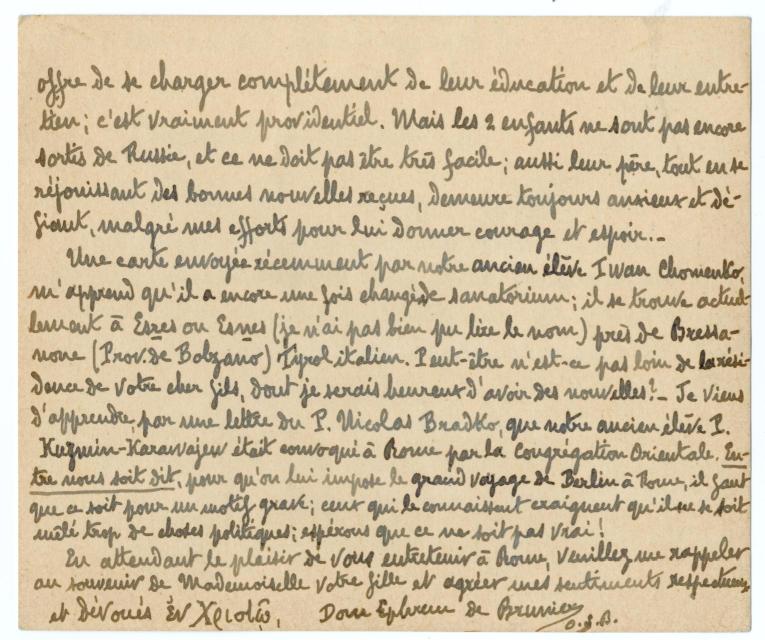 offre de se charger complétement de leur éducation et de leur entre-
tien; c'est vraiment providentiel. Mais les 2 enfants ne sont pas encore
sortis de Russie, et ce ne doit pas être très facile; aussi leur père, tout en se
réjouissant des bonnes nouvelles reçues, demeure toujours anxieux et dé-
fiant, malgré mes efforts pour lui donner courage et espoir.-
Une carte envoyée récemment par notre ancien élève Iwan Chomenko,
m'apprend qu'il a encore une fois changé de sanatorium; il se trouve actuel-
lement à Esres ou Esnes (je n'ai pas bien pu lire le nom) près de Bressa-
none (Prov. de Bolzano) Tyrol italien. Peut-être n'est-ce pas loin de la rési-
dence de votre cher fils, dont je serais heureux d'avoir des nouvelles?- Je viens
d'apprendre, par une lettre du P. Nicolas Bradko, que notre ancien élève P.
Kuzmin-Karawajew était convoqué à Rome par la Congrégation Orientale. En-
tre nous soit dit, pour qu'on lui impose le grand voyage de Berlin à Rome, il faut
que ce soit pour un motif grave; ceux qui le connaissent craignent qu'il ne se soit
mêlé trop de choses politiques; espérons que ce ne soit pas vrai!
En attendant le plaisir de vous entretenir à Rome, veuillez me rappeler
au souvenir de Mademoiselle votre fille et agréer mes sentiments respectueux
et dévoués ἐν Χριστῷ, Dom Ephrem de Brunier
O.S.B.